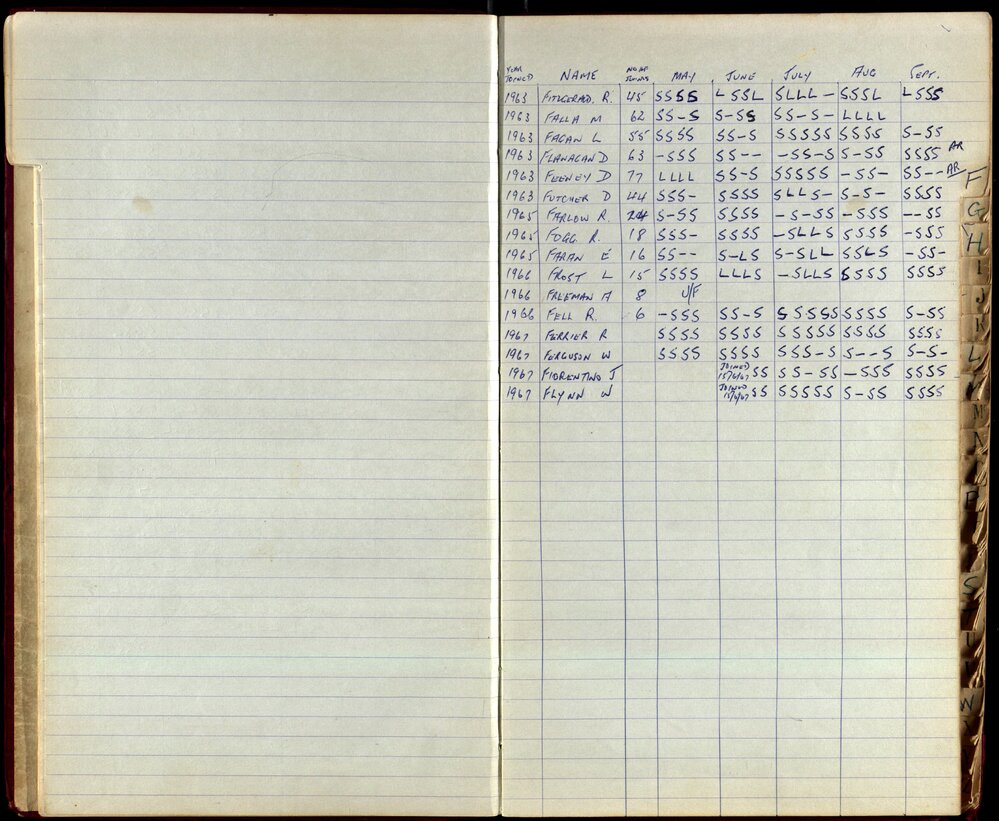 YEAR JOINED NAME NO OF POINTS MAY JUNE JULY AUG SEPT.
1963 FITZGERALD. R. 45 SSSS LSSL SLLL- SSSL LSSS
1963 FALLA M 62 SS-S S-SS SS-S- LLLL
1963 FAGAN L 55 SSSS SS-S SSSSS SSSS S-SS
1963 FLANAGAN D 63 -SSS SS-- -SS-S S-SS SSSS AR
1963 FEENEY D 77 LLLL SS-S SSSSS -SS- SS-- AR
1963 FUTCHER D 44 SSS- SSSS SLLS- S-S- SSSS
1965 FARLOW R. 24 S-SS SSSS -S-SS -SSS --SS
1965 FOGG. R. 18 SSS- SSSS -SLLS SSSS -SSS
1965 FARAN E 16 SS-- S-LS S-SLL SSLS -SS-
1966 FROST L 15 SSSS LLLS -SLLS SSSS SSSS
1966 FREEMAN A 8 U/F
1966 FELL R. 6 -SSS SS-S SSSSS SSSS S-SS
1967 FERRIER R SSSS SSSS SSSSS SSSS SSSS
1967 FERGUSON W SSSS SSSS SSS-S S--S S-S-
1967 FIORENTINO J JOINED 15/6/67 SS SS-SS -SSS SSSS
1967 FLYNN W JOINED 15/6/67 SS SSSSS S-SS SSSS
F
G
H
I
J
K
L
M
N
P
S
T
W